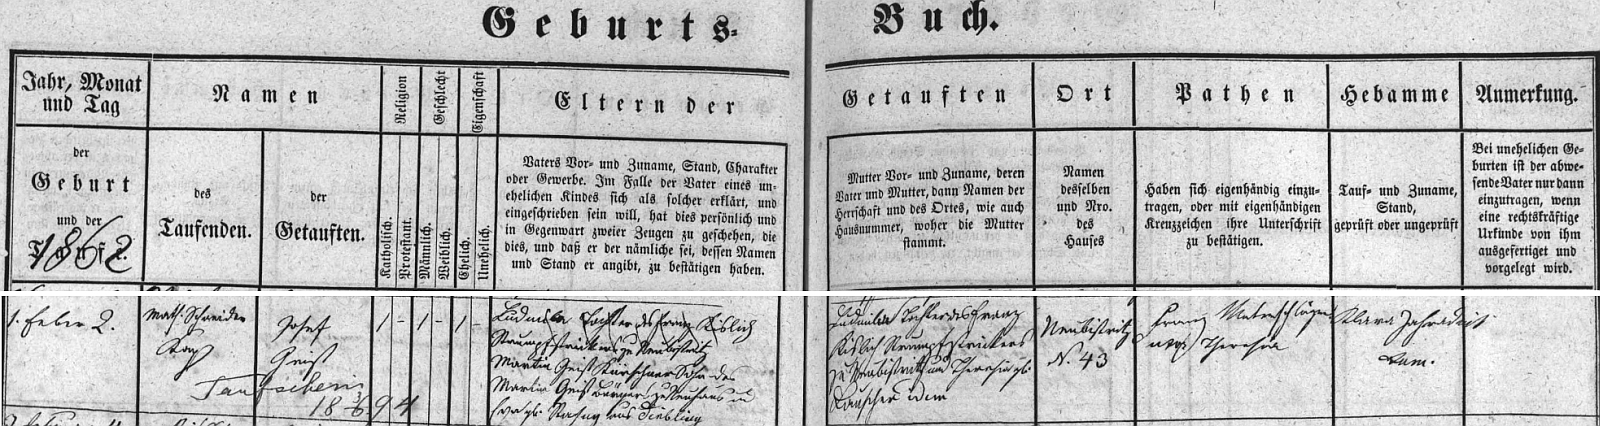 Geburts-
Buch.
Jahr, Monat
und Tag
Namen
Religion
Geschlecht
Eigenschaft
Eltern der
Getauften
Ort
Pathen
Hebamme
Anmerkung.
der
Geburt
und der
Taufe.
1862
des
Taufenden.
der
Getauften.
Katholisch.
Protestant.
Männlich.
Weiblich.
Ehelich.
Unehelich.
Vaters Vor- und Zuname, Stand, Charakter
oder Gewerbe. Im Falle der Vater eines un-
ehelichen Kindes sich als solcher erklärt, und
eingeschrieben sein will, hat dies persönlich und
in Gegenwart zweier Zeugen zu geschehen, die
dies, und daß er der nämliche sei, dessen Namen
und Stand er angibt, zu bestätigen haben.
Mutter Vor- und Zuname, deren
Vater und Mutter, dann Namen der
Herrschaft und des Ortes, wie auch
Hausnummer, woher die Mutter
stammt.
Namen
desselben
und Nro.
des
Hauses
Haben sich eigenhändig einzu-
tragen, oder mit eigenhändigen
Kreuzzeichen ihre Unterschrift
zu bestätigen.
Tauf- und Zuname,
Stand,
geprüft oder ungeprüft
Bei unehelichen Ge-
burten ist der abwe-
sende Vater nur dann
einzutragen, wenn
eine rechtskräftige
Urkunde von ihm
ausgefertiget und
vorgelegt wird.
1. Feber 2.
Math. Schneider
Josef
Geist
Taufschein
18 3/6 94
1 - 1 - 1 -
Ludmila Tochter des Franz Kislich
Strumpfstrickers zu Neubistritz
Martin Geist Kürschner Sohn des
Martin Geist Bürgers zu Neuhaus
Ludmila Tochter des Franz
Kislich Strumpfstrickers
zu Neubistritz und Theresia geb.
Rauscher
Neubistritz
N. 43
Franz
Theresia
Klara